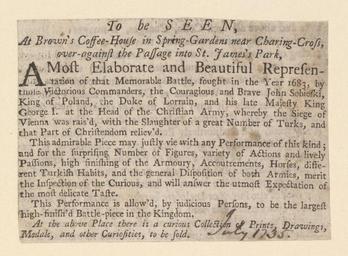 To be SEEN,
At Brown's Coffee-House in Spring-Gardens near Charing-Cross,
over-against the Passage into St. James's Park,
A Most Elaborate and Beautiful Represen-
tation of that Memorable Battle, fought in the Year 1683, by
those Victorious Commanders, the Couragious and Brave John Sobieski,
King of Poland, the Duke of Lorrain, and his late Majesty King
George I. at the Head of the Christian Army, whereby the Siege of
Vienna was rais'd, with the Slaughter of a great Number of Turks, and
that Part of Christendom reliev'd.
This admirable Piece may justly vie with any Performance of this kind;
and for the surprising Number of Figures, variety of Actions and lively
Passions, high finishing of the Armoury, Accoutrements, Horses, diffe-
rent Turkish Habits, and the general Disposition of both Armies, merit
the Inspection of the Curious, and will answer the utmost Expectation of
the most delicate Taste.
This Performance is allow'd, by judicious Persons, to be the largest
high-finish'd Battle-piece in the Kingdom.
At the above Place there is a curious Collection of Prints, Drawings,
Medals, and other Curiosities, to be sold.
July 1735.